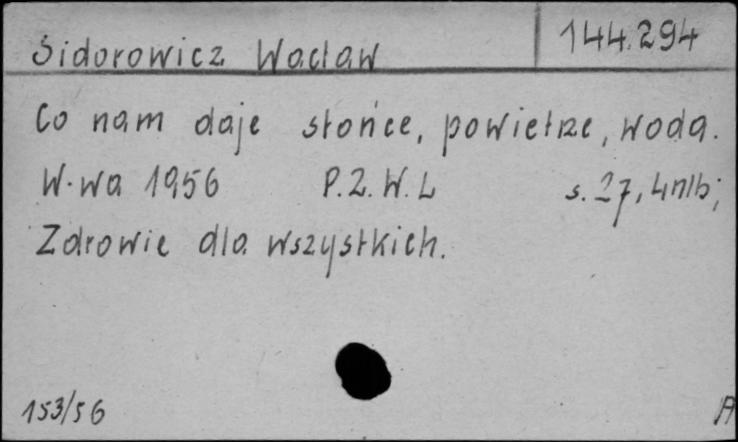 Sidorowicz Wacław 144.294
Co nam daje słońce, powietrze, woda.
W-wa 1956 P.Z.W.L s. 27, 4nlb;
Zdrowie dla wszystkich.
153/56 A